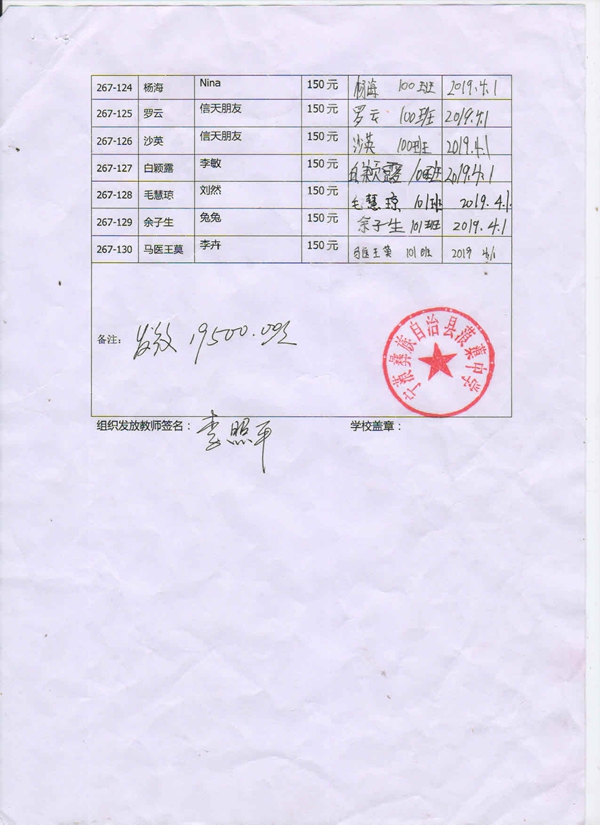 267-124 杨海 Nina 150 元 杨海 100班 2019.4.1
267-125 罗云 信天朋友 150 元 罗云 100班 2019.4.1
267-126 沙英 信天朋友 150 元 沙英 100班 2019.4.1
267-127 白颖露 李敏 150 元 白颖露 10班 2019.4.1
267-128 毛慧琼 刘然 150 元 毛慧琼 101班 2019.4.1.
267-129 余子生 兔兔 150 元 余子生 101班 2019.4.1
267-130 马医王莫 李卉 150 元 马医王莫 101班 2019 4/1
备注： 发放 19500.00元
宁蒗彝族自治县蒗蕖中学
组织发放教师签名： 李照平 学校盖章：